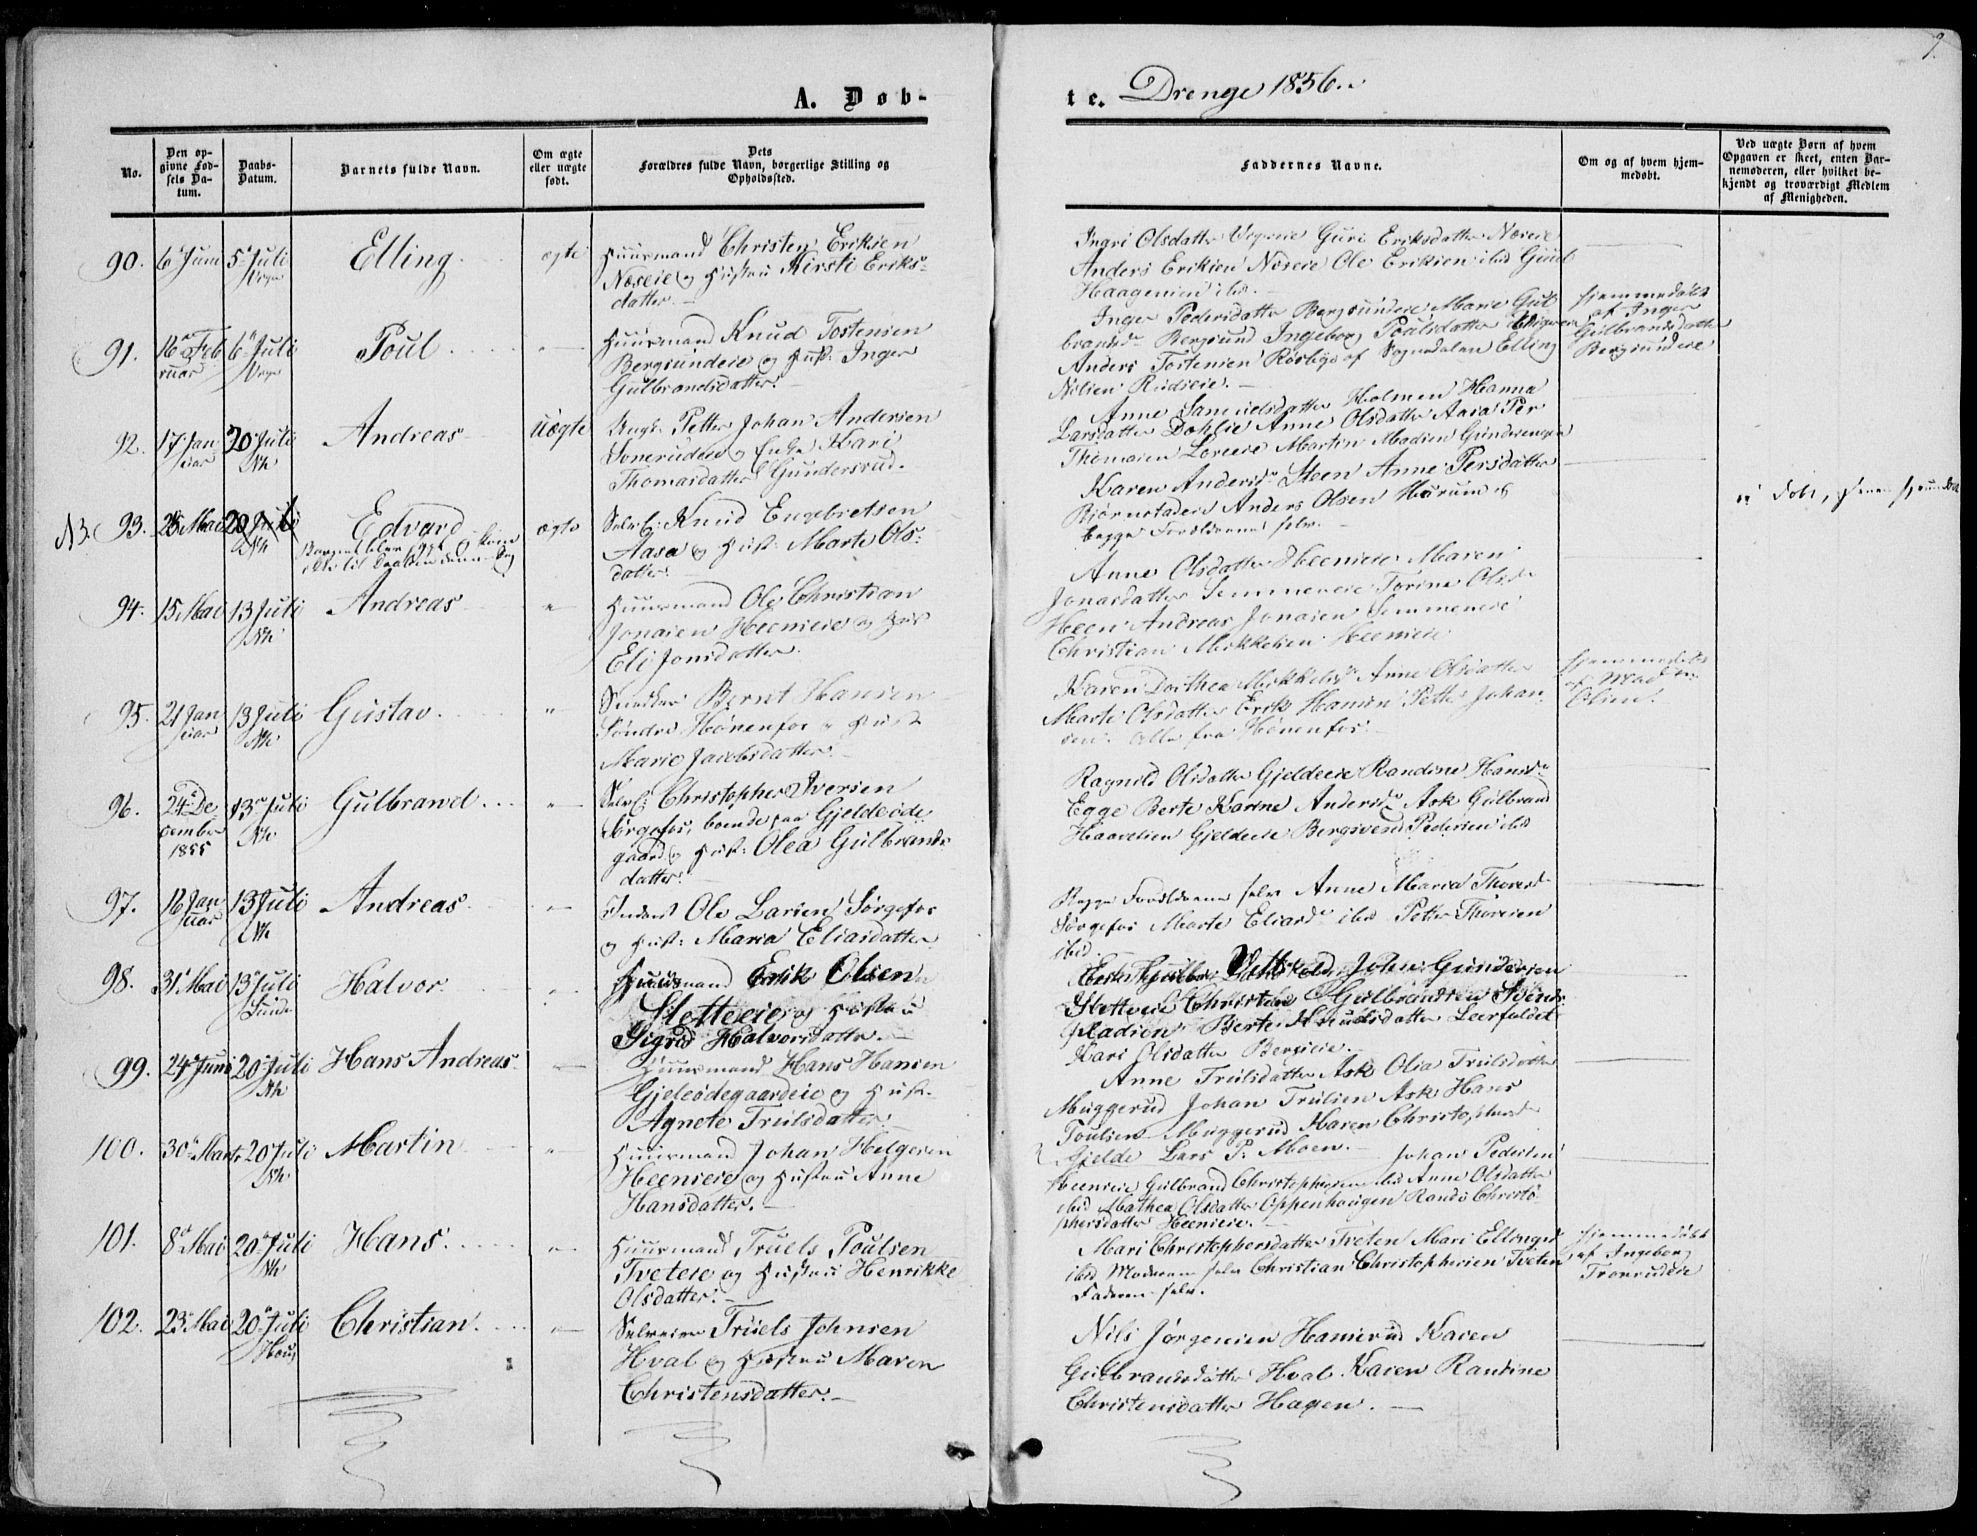 9.
A. Døb-
te. Drenge 1856.
No.
Den op-
givne Fød-
sels Da-
tum.
Daabs-
Datum.
Barnets fulde Navn.
Om ægte
eller uægte
født.
Dets
Forældres fulde Navn, borgerlige Stilling og
Opholdssted.
Faddernes Navne.
Om og af hvem hjem-
medøbt.
Ved uægte Børn af hvem
Opgaven er skeet, enten Bar-
nemoderen, eller hvilket be-
kjendt og troværdigt Medlem
af Menigheden.
90. 6 Juni 5 Juli Elling ægte Huusmand Christen Eriksen
Næseie og Hustru Kirsti Eriks-
datter.
Ingri Olsdatter Guri Eriksdatter Næseie
Anders Eriksen Næseie Ole Eriksen ibd
Haagensen ibd.
91. 16 Feb 6 Juli Poul Huusmand Knud Tostensen
ruar
Bergsundeie og Hust: Inger
Gulbrandsdatter.
Inger Pedersdatter Bergsundeie Marie Gul
brandsd. Bergsund Ingeborg Poulsdatter
Anders Tostensen af Sognedalen Elling
Nilsen Rudseie.
hjemmedøbt
af Inger
Gulbrandsdatter
Bergsundeie
92. 17 Jan 20 Juli Andreas Uægte Ungk. Petter Johan Andersen
uar Nh
og Enke Kari
Thomasdatter Gundersrud.
Anne Samuelsdatter Holmen Hanna
Larsdatter Dahlie Anne Olsdatter Aasa Per
Thomasen Martin Madsen
93. Mai 20 Juli Edvard ægte Selve: Knud Engebretsen
Nh
Aasa og Hust: Marte Ols-
datter.
Karen Andersd. Steen Anne Persdatter
Anders Olsen Hurum og
begge Forældrene selv.
94. 15 Mai 13 Juli Andreas Huusmand Ole Christian
Nh
Jonasen Heenseie og Hust
Eli Jonsdatter.
Anne Olsdatter Heenseie Maren
Jonasdatter Semmeneie Torine Olsd.
Heen Andreas Jonasen Semmeneie
Christian Mikkelsen Heenseie
95. 21 Jan 13 Juli Gustav Snedker Bernt Hansen
uar Nh
Søndre Hønenfos og Hust
Marie Jacobsdatter.
Karen Dorthea Mikkelsd. Anne Olsdatter
Marte Olsdatter Erik Hansen Petter Johan-
sen. Alle fra Hønenfos.
hjemmedøbt
af Mads
Olsen.
96. 24 De 13 Juli Gulbrand Selve: Christopher Iversen
cember Nh
1855
Sørgefos, boende paa Gjeldeøde
gaard og Hust: Olea Gulbrands
datter.
Ragnild Olsdatter Gjeldeeie Randine Hansd.
Egge Berte Karine Andersd. Ask Gulbrand
Haavelsen Gjeldeeie Bergsvend Pedersen ibd
97. 16 Jan 13 Juli Andreas Inderst Ole Larsen Sørgefos
uar Nh
og Hust: Maria Eliasdatter
Begge Forældrene selv Anne Maria Thoresd
Sørgefos Marte Eliasd. ibd Petter Thoresen
ibid
98. 31 Mai 13 Juli Halvor Huusmand Erik Olsen
Sletteeie og Hustru
Sigrid Halvorsdatter.
John Gundersen
Sletteeie Christian Gulbrandsen
Berte Knudsdatter Leerfaldet
Kari Olsdatter Bergseie.
99. 24 Juni 20 Juli Hans Andreas Huusmand Hans Hansen
Nh
Gjeleødegaardeie og Hust.
Agnete Trulsdatter.
Anne Trulsdatter Ask Olia Trulsdatter
Muggerud Johan Trulsen Ask Hans
Poulsen Muggerud Karen Christophersd.
Gjelde Lars P. Moen.
100. 30 Marts 20 Juli Martin Huusmand Johan Helgesen
Nh
Heenseie og Hustru Anne
Hansdatter.
Johan Pedersen
Heenseie Gulbrand Christophersen ibd Anne Olsdatter
ibid Mathea Olsdatter Oppenhaugen Randi Christo-
phersdatter Heenseie.
101. 8 Mai 20 Juli Hans Huusmand Truels Poulsen
Nh
Tveteie og Hustru Henrikke
Olsdatter.
Mari Christophersdatter Tveten Mari Ellingsd
ibid Moderen selv Christian Christophersen Tveten
Faderen selv.
hjemmedøbt
af Ingeborg
Tronrudeie
102. 23 Mai 20 Juli Christian Selveier Truels Johnsen
Houg
Hval og Hustru Maren
Christensdatter.
Nils Jørgensen Hamerud Karen
Gulbrandsdatter Hval Karen Randine
Christensdatter Hagen.